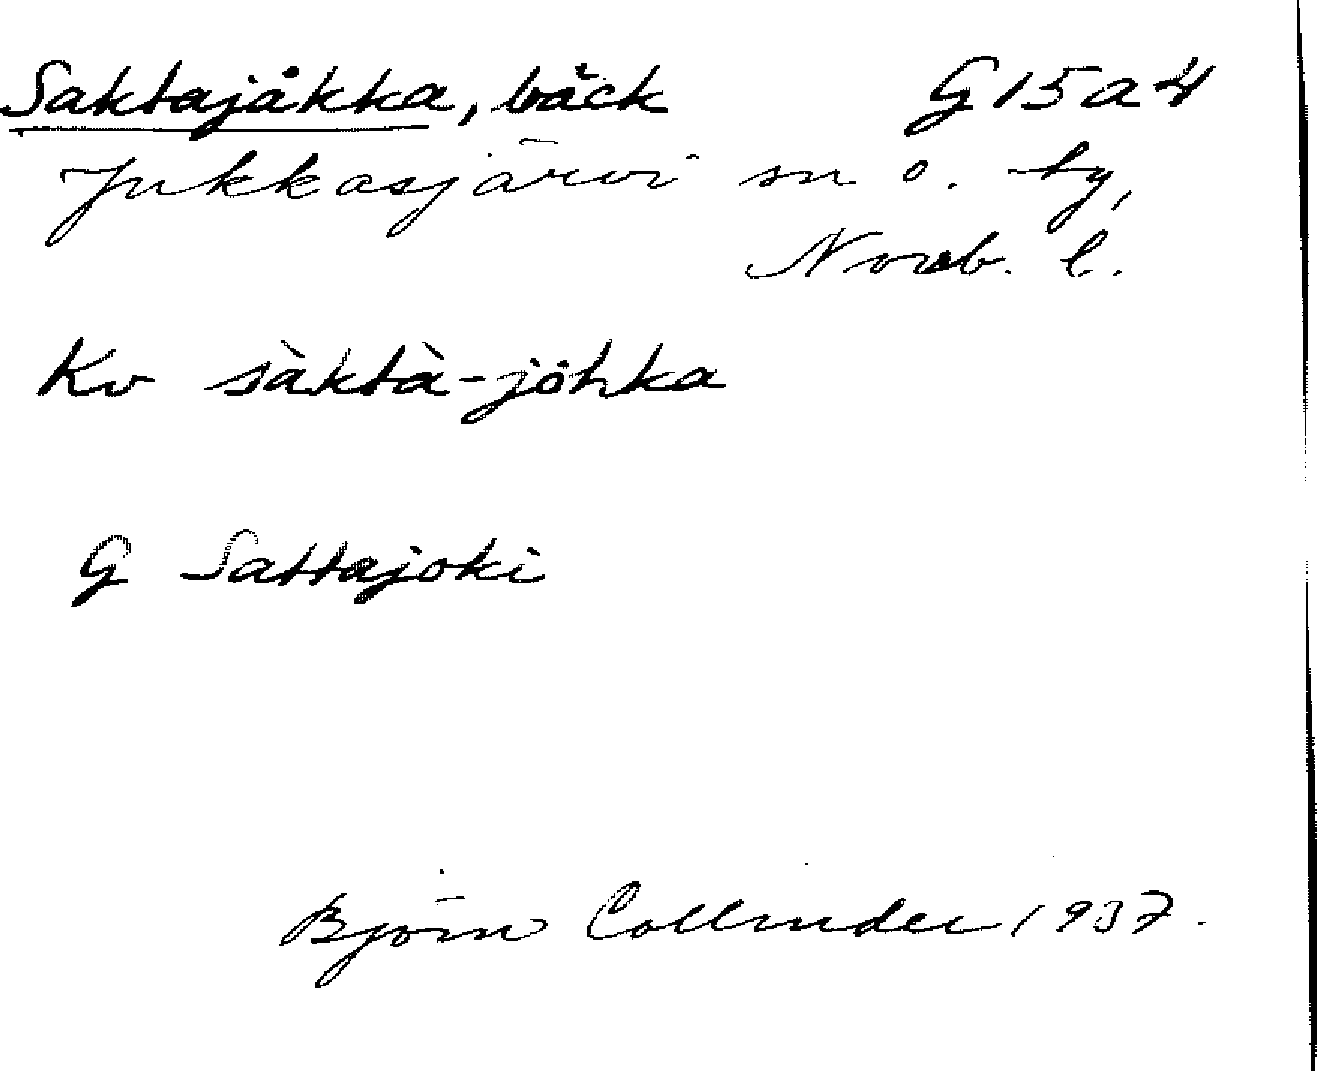 Saktajåkka, bäck G15a4
Jukkasjärvi sn o. by,
Norrb. l.
Kv sàktà-jöhka
G Sattajoki
Björn Collinder 1937.